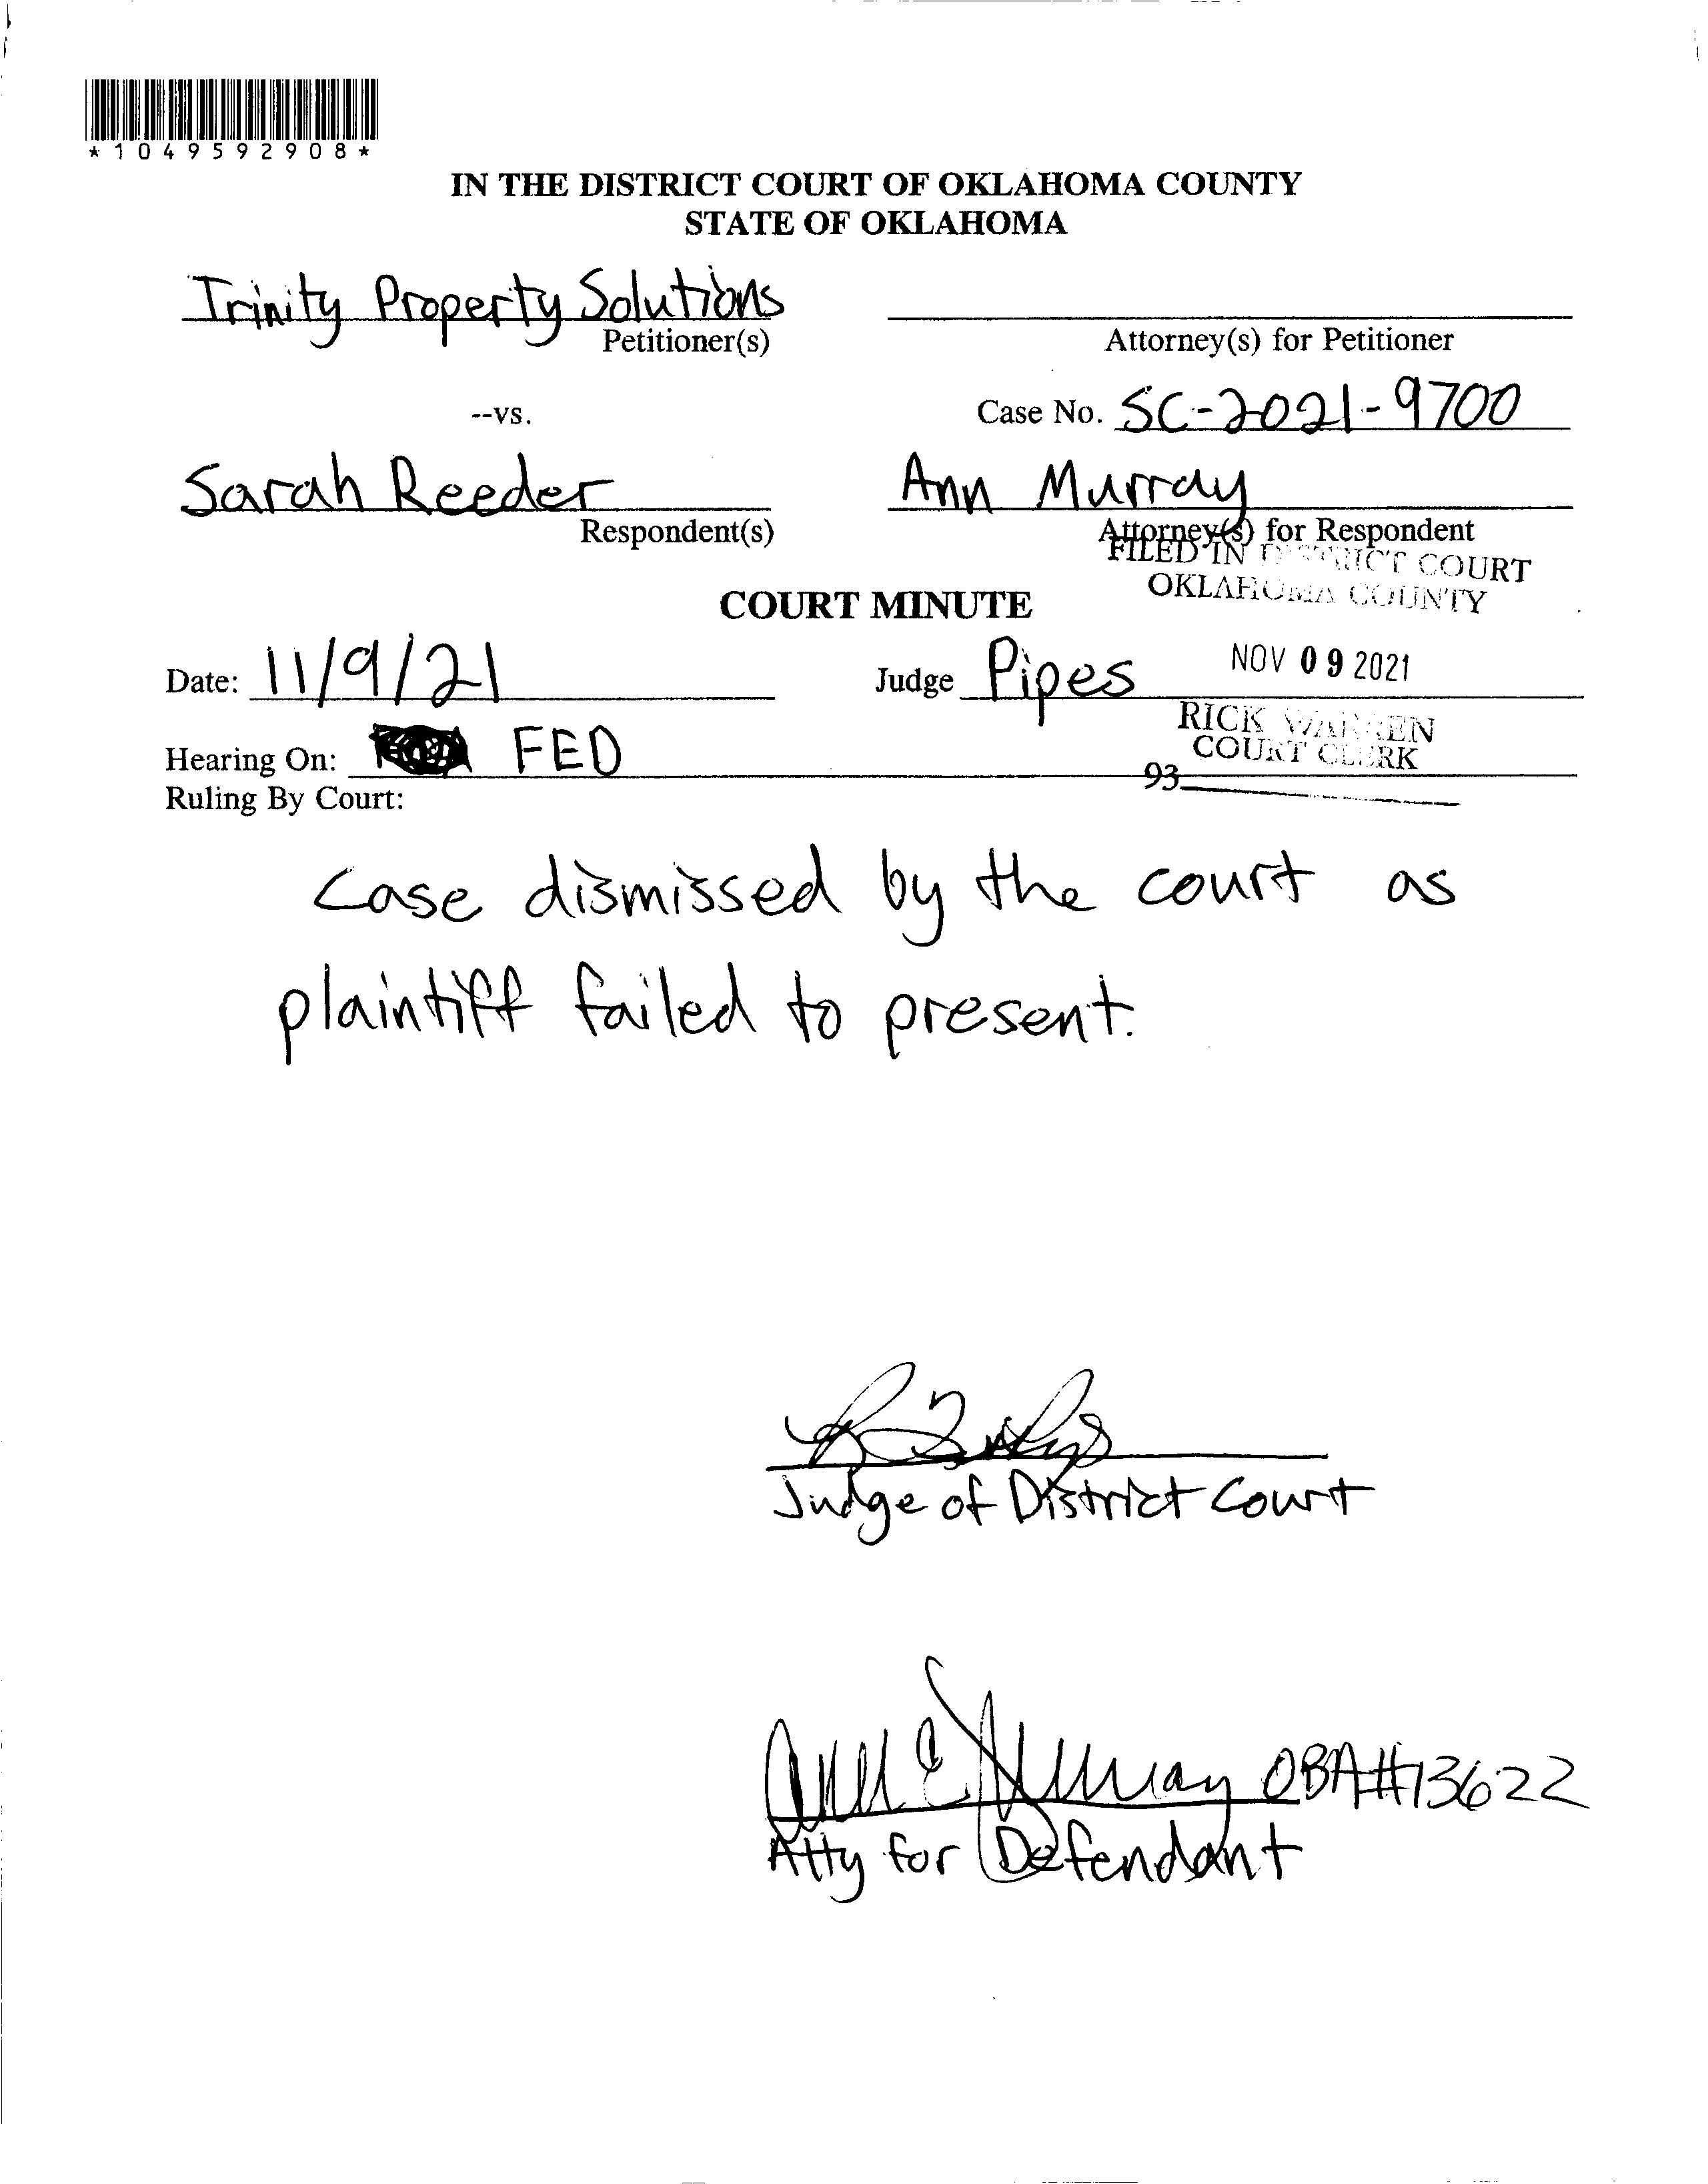 *1049592908*
IN THE DISTRICT COURT OF OKLAHOMA COUNTY
STATE OF OKLAHOMA
Trinity Property Solutions
Petitioner(s)
Attorney(s) for Petitioner
--vs.
Case No. SC-2021-9700
Sarah Reeder
Respondent(s)
Ann Murray
Attorney(s) for Respondent
FILED IN DISTRICT COURT
OKLAHOMA COUNTY
COURT MINUTE
Date: 11/9/21
Judge Pipes
NOV 09 2021
RICK WARREN
COURT CLERK
Hearing On: FED
93
Ruling By Court:
Case dismissed by the court as
plaintiff failed to present.
Judge of District Court
Ann E Murray OBA#13622
Atty for Defendant